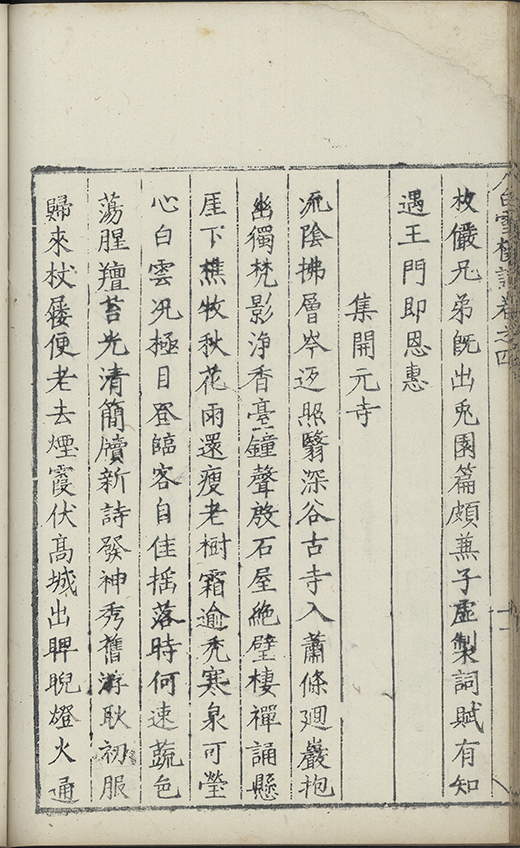 白雪樓詩卷之四
枚儼兄弟旣出兎園篇頗兼子虛製詞賦有知
遇王門即恩惠
集開元寺
流陰拂層岑返照翳深谷古寺入蕭條廻巖抱
幽獨梵影浄香臺鐘聲殷石屋絶壁棲禪誦懸
厓下樵牧秋花雨還瘦老樹霜逾秃寒泉可瑩
心白雲况極目登臨客自佳揺落時何速蔬色
蕩腥羶苔光清簡牘新詩發神秀舊游耿初服
歸來杖屨便老去煙霞伏髙城出睥睨燈火通